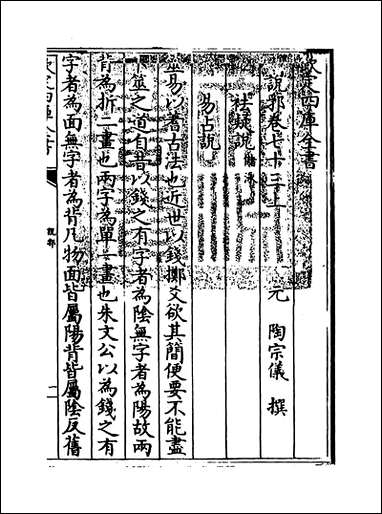 欽定四庫全書
說郛卷七十三上
元 陶宗儀 撰
易占說
筮易以蓍古法也近世以錢擲爻欲其簡便要不能盡
卜筮之道自昔以錢之有字者為陰無字者為陽故兩
背為折二畫也兩字為單一畫也朱文公以為錢之有
字者為面無字者為背凡物面皆屬陽背皆屬陰反舊
欽定四庫全書
說郛